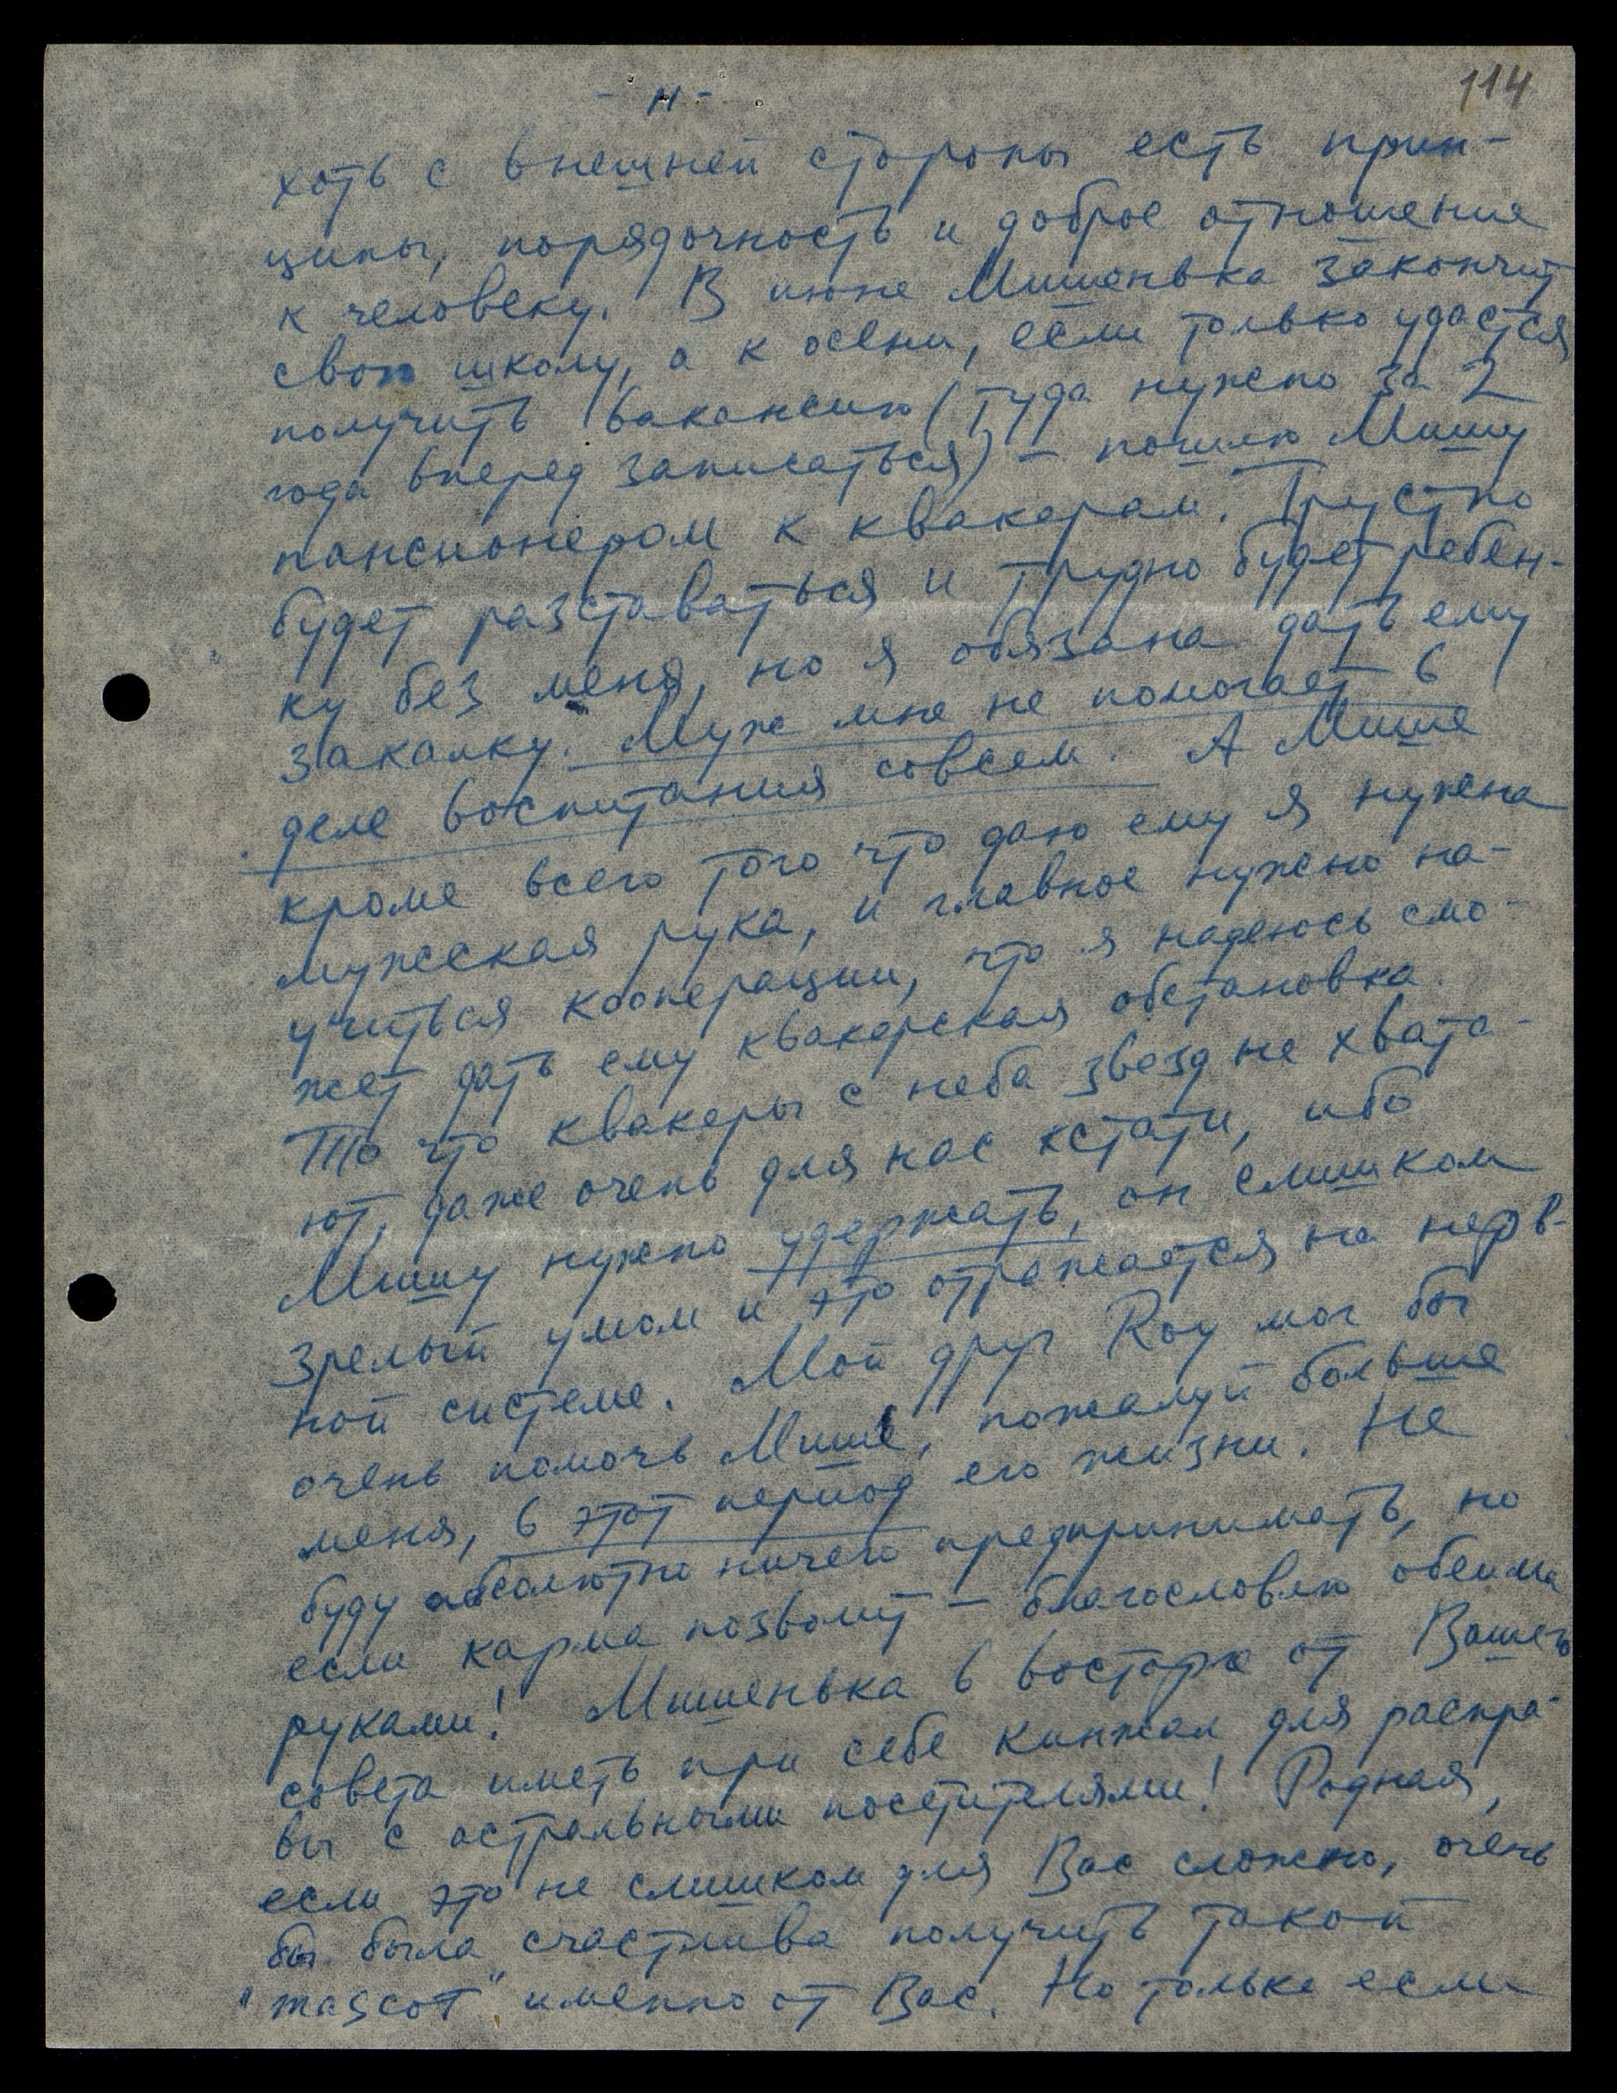 114
- 11 -
хоть с внешней стороны есть прин-
ципы, порядочность и доброе отношение
к человеку. В июне Мишенька закончит
свою школу, а к осени, если только удастся
получить вакансию (туда нужно за 2
года вперед записаться) – пошлю Мишу
пансионером к квакерам. Грустно
будет разставаться и трудно будет ребен-
ку без меня, но я обязана дать ему
закалку. Муж мне не помогает в
деле воспитания совсем. А Мише
кроме всего того что даю ему я нужена
мужская рука, и главное нужно на-
учиться кооперации, что я надеюсь смо-
жет дать ему квакерская обстановка.
То что квакеры с неба звезд не хвата-
ют, даже очень для нас кстати, ибо
Мишу нужно удержать, он слишком
зрелый умом и это отражается на нерв-
ной системе. Мой друг Roy мог бы
очень помочь Мише, пожалуй больше
меня, в этот период его жизни. Не
буду абсолютно ничего предпринимать, но
если карма позволит – благословлю обеими
руками! Мишенька в восторге от Вашего
совета иметь при себе кинжал для распра-
вы с астральными посетителями! Родная,
если это не слишком для Вас сложно, очень
бы была счастлива получить такой
"mascot" именно от Вас. Но только если